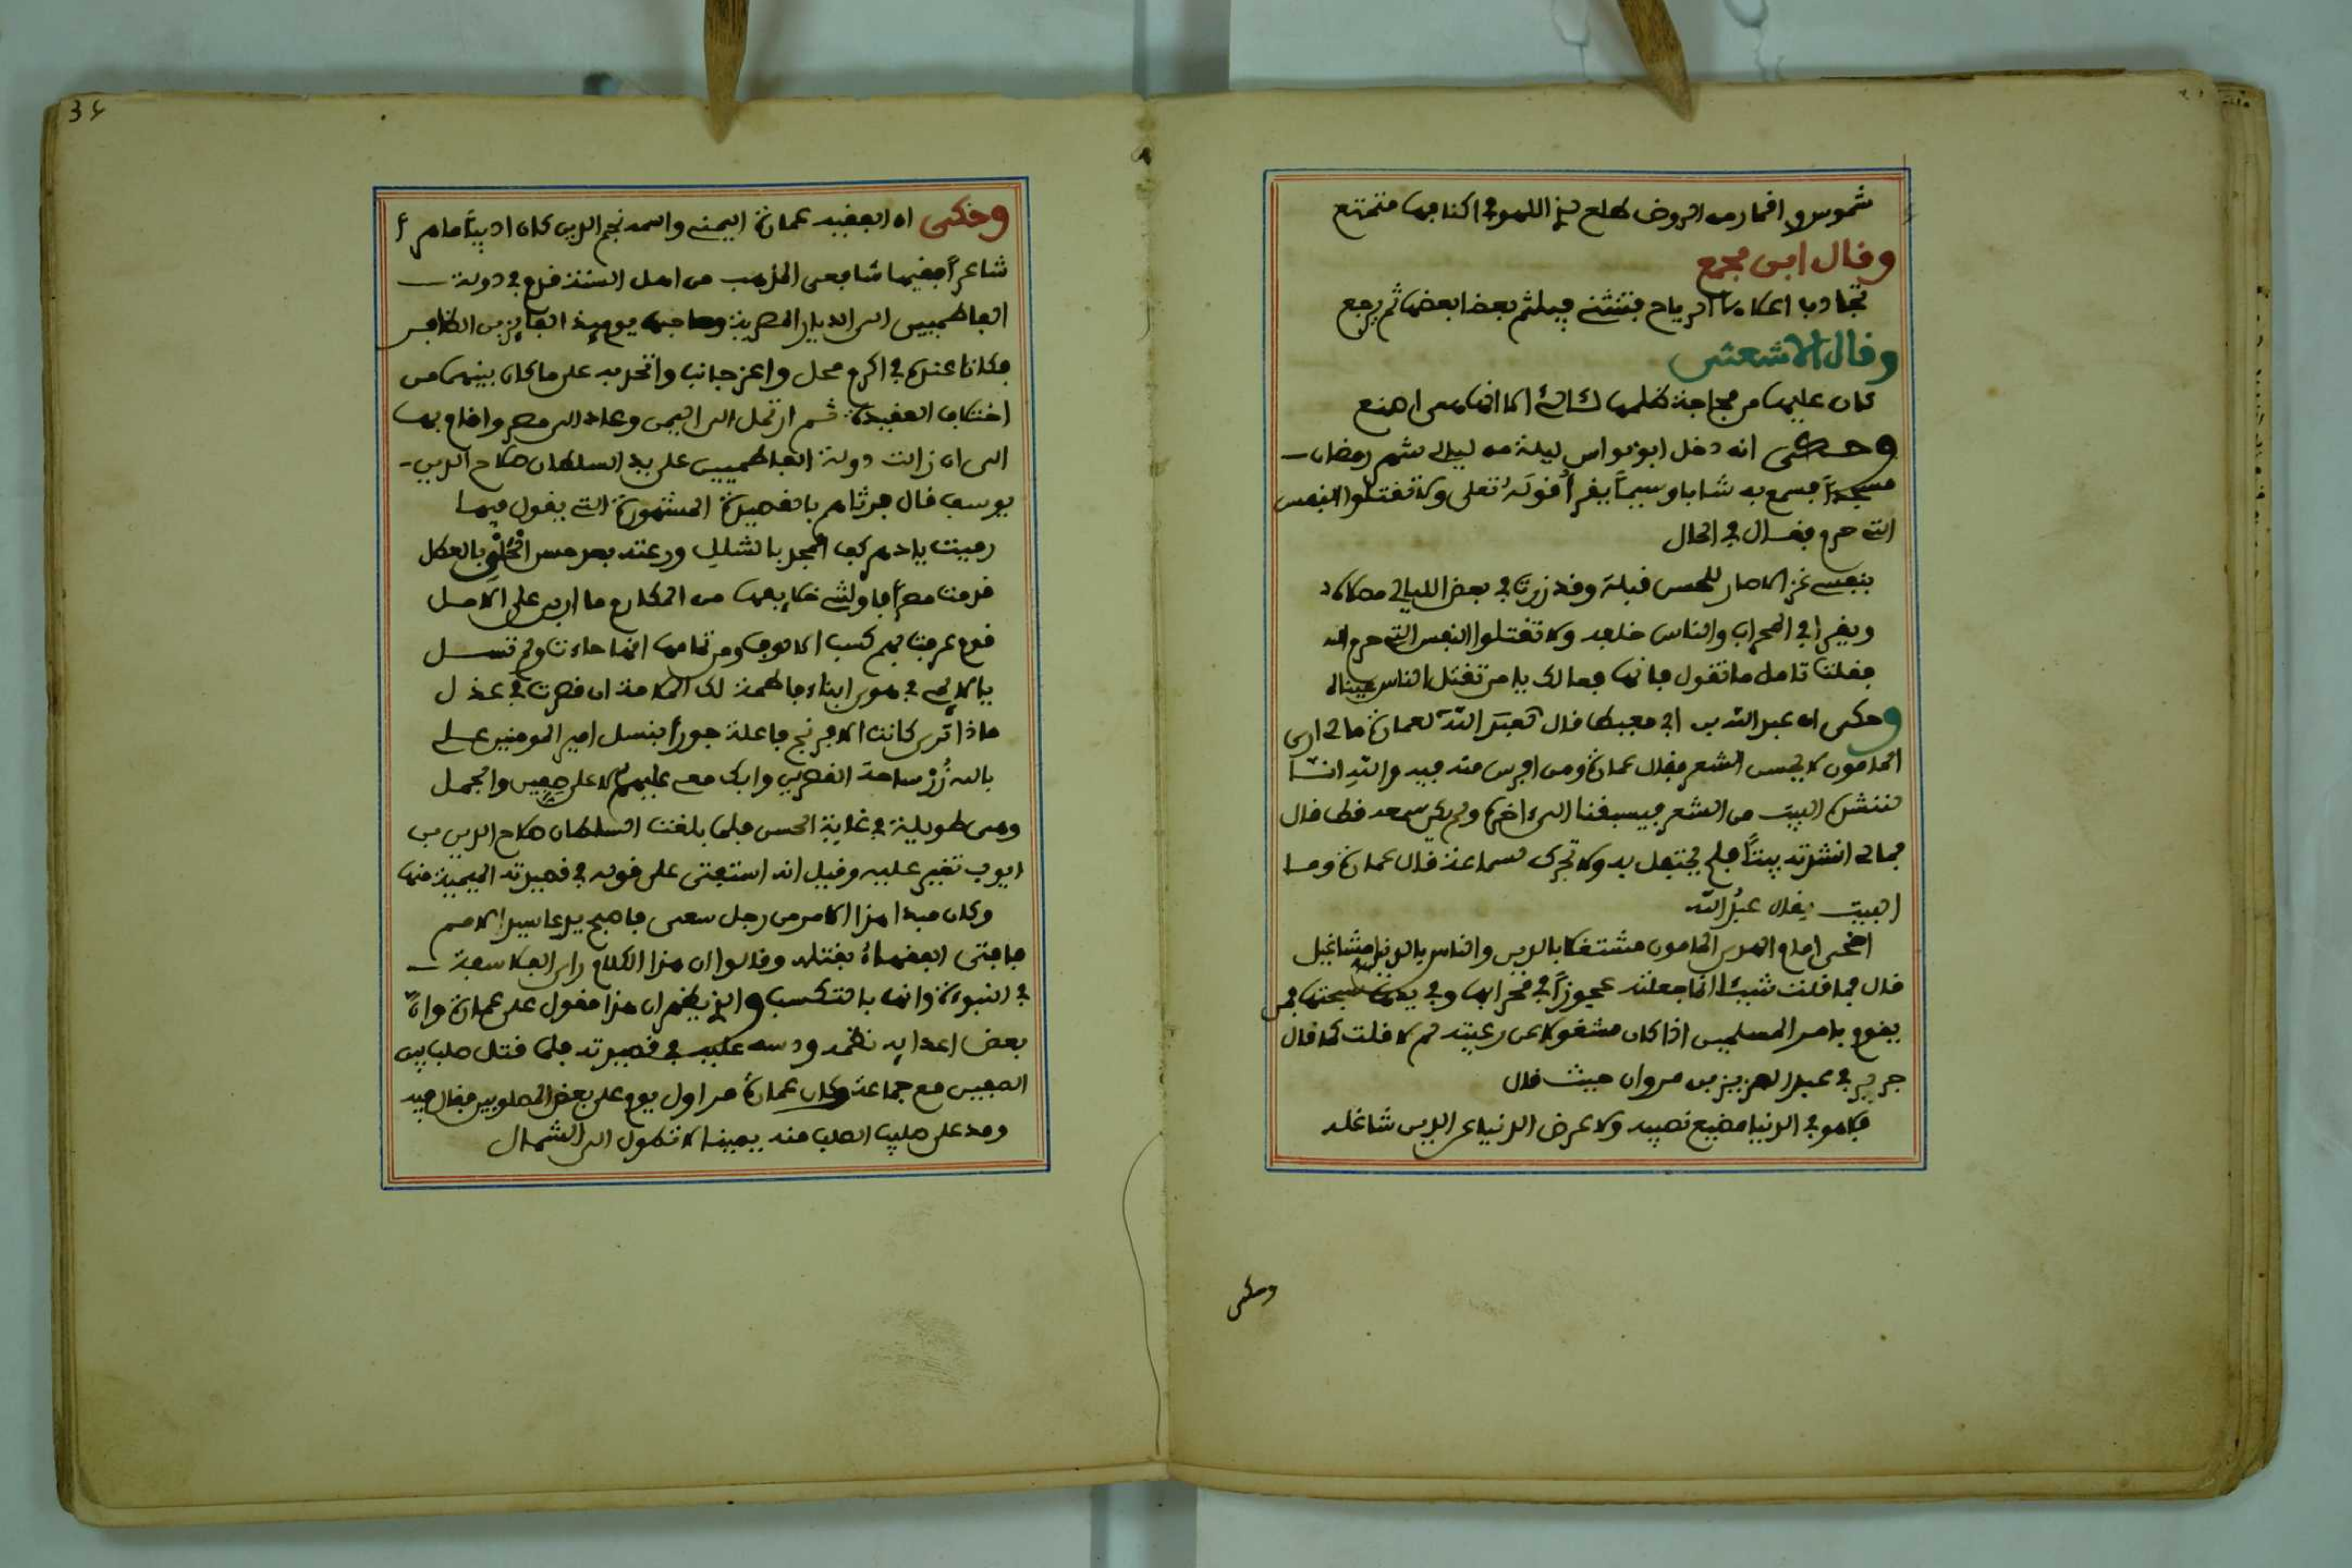 شموس واقمار من الروض طلع لذي اللهو في اكنافها متمتع
وقال ابن مجمع
تجاذب اعطافها الرياح فتنثني فيلثم بعضا بعضها ثم يرجع
وقال الاشعثي
كان عليها من مجاجة
وحكى انه دخل ابو نواس ليلة من ليالي شهر رمضان
مسجدا فسمع به شابا وسيما يقرأ قوله تعلى ولا تقتلوا النفس
التي حرم فقال في الحال
بنفسي غزالا صار للحسن قبلة وقد زرت في بعض الليالي مصلاه
ويقرا في المحراب والناس خلفه ولا تقتلوا النفس التي حرم الله
فقلت تامل ما تقول فانها فعالك يا من تقتل الناس عيناه
وحكى ان عبد الله بن ابي معيط قال لعمارة ما لي ارى
المامون لا يحسن الشعر فقال عمارة ومن افرس منه فيه والله انا
لننشده البيت من الشعر فيسبقنا الى اخره ولم يكن سمعه قط قال
فما لي انشدته بيتا فلم يحتفل به ولا تحرك سماعه قال عمارة وما
البيت فقال عبد الله
اضحى امام الهدى المامون مشتغلا بالدين والناس بالدنيا مشاغيل
قال فما قلت شيئا انما جعلته عجوزا في محرابها وفي يدها سبحتها فمن
يقوم بامر المسلمين اذا كان مشغولا عن رعيته لم لا قلت كما قال
جرير في عبد العزيز بن مروان حيث قال
فلا هو في الدنيا مضيع نصيبه ولا عرض الدنيا عن الدين شاغله
وحكى
36
وحكى ان الفقيه عمارة اليمني واسمه نجم الدين كان اديبا ماهرا
شاعرا فقيها شافعي المذهب من اهل السنة قدم في دولة
الفاطميين الى الديار المصرية وصاحبها يومئذ الفايز بن الظافر
فكانا عنده في اكرم محل واعز جانب واتحد به على ما كان بينهما من
اختلاف العقيدة ثم ارتحل الى اليمن وعاد الى مصر واقام بها
الى ان زالت دولة الفاطميين على يد السلطان صلاح الدين
يوسف قال فرثاهم بالقصيدة المشهورة التي يقول فيها
رميت يا دهر كف المجد بالشلل ورعته بعد حسن الحلي بالعطل
قدمت مصر فاولتني خلايفها من المكارم ما اربى على الامل
قوم عرفت بهم كسب الالوف ومن تمامها انها جاءت ولم تسل
يا لائمي في هوى ابناء فاطمة لك الملامة ان قصرت في عذل
ماذا ترى كانت الافرنج فاعلة جورا بنسل امير المومنين علي
بالله زر ساحة القصرين وابك معي عليهم لا على صفين والجمل
وهي طويلة في غاية الحسن فلما بلغت السلطان صلاح الدين بن
ايوب تغير عليه وقيل انه استفتى على قوله في قصيدته الميمية منها
وكان مبدا هذا الامر من رجل سعى فاصبح يدعا سيد الامم
فافتى الفقهاء بقتله وقالوا ان هذا الكلام راي الفلاسفة
في النبوة وانها بالتكسب والذي يظهر ان هذا مقول على عمارة وان
بعض اعدايه نظمه ودسه عليه في قصيدته فلما قتل صلب بين
القصرين مع جماعة وكان عمارة مر اول يوم على بعض المصلوبين فقال فيه
ومد على صليب الصلب منه يمينا لا تطول الى الشمال